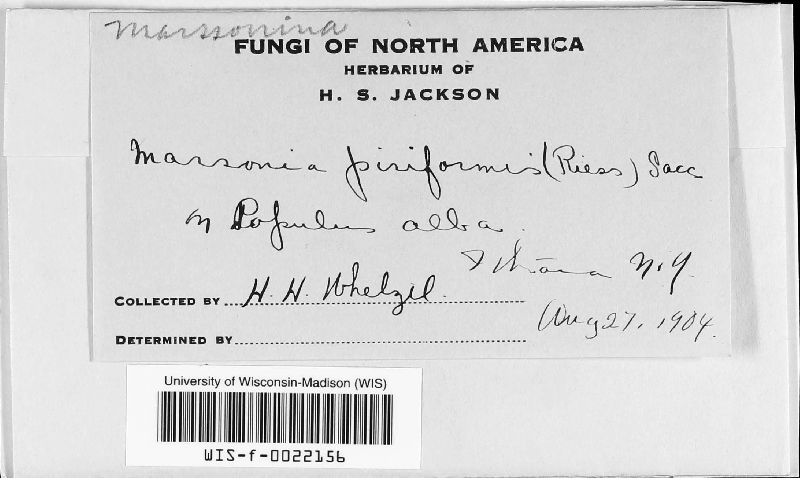 Marssonina
FUNGI OF NORTH AMERICA
HERBARIUM OF
H. S. JACKSON
Marsonia piriformis (Riess) Sacc
on Populus alba.
Ithaca N.Y.
COLLECTED BY H. H. Whetzel.
Aug 27, 1904.
DETERMINED BY
University of Wisconsin-Madison (WIS)
WIS-f-0022156